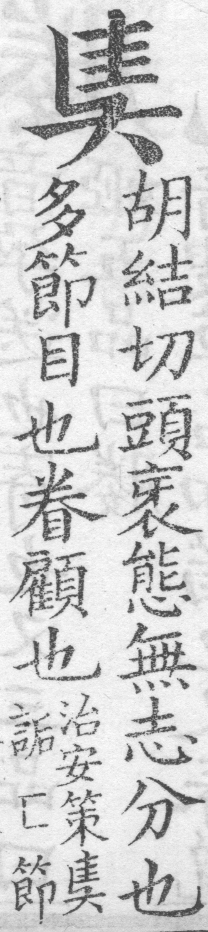 奊
胡結切頭衺態無志分也
多節目也眷顧也
治安策奊
詬亡節